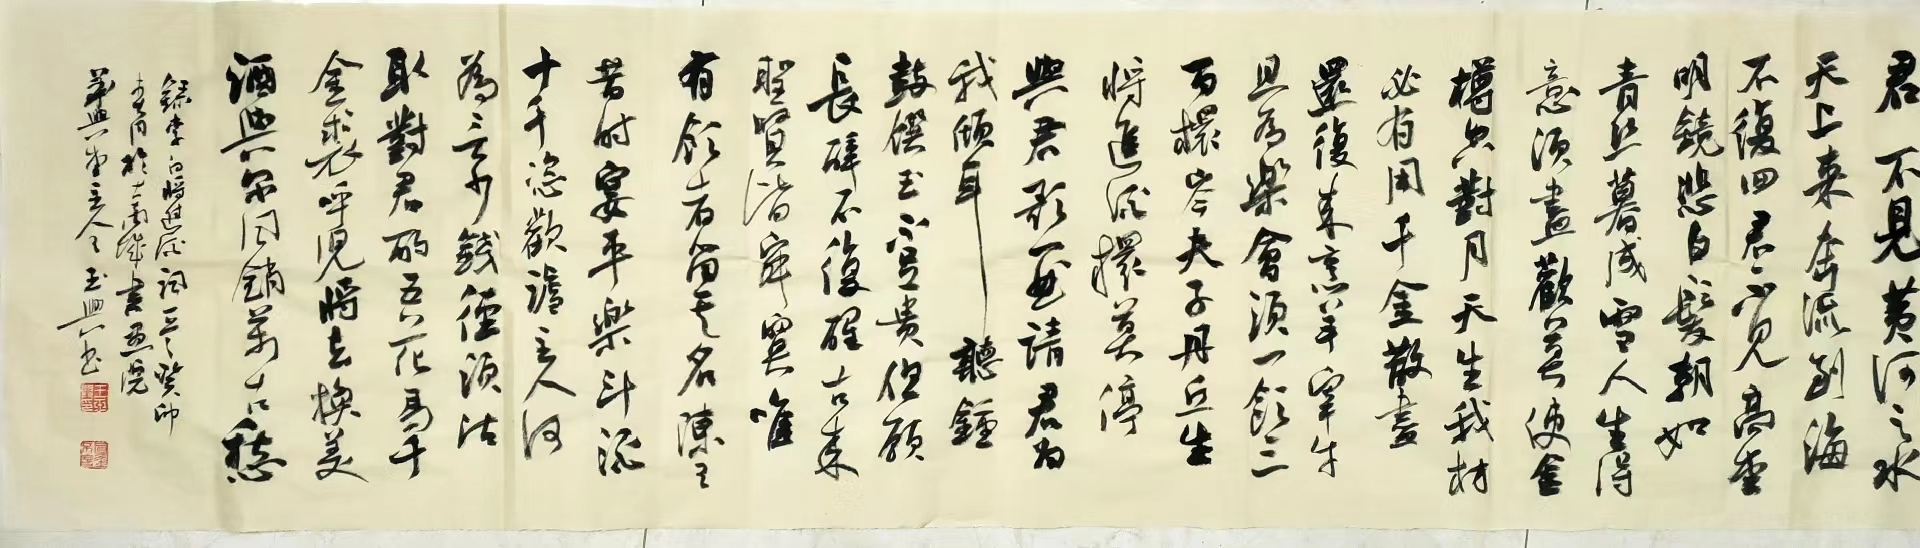 君不見黄河之水
天上來奔流到海
不復回君不見高堂
明鏡悲白髮朝如
青絲暮成雪人生得
意須盡歡莫使金
樽空對月天生我材
必有用千金散盡
還復來烹羊宰牛
且為樂會須一飲三
百杯岑夫子丹丘生
將進酒杯莫停
與君歌一曲請君為
我傾耳聽鐘
鼓饌玉不足貴但願
長醉不復醒古來
聖賢皆寂寞唯
有飲者留其名陳王
昔時宴平樂斗酒
十千恣歡謔主人何
為言少錢徑須沽
取對君酌五花馬千
金裘呼兒將出換美
酒與爾同銷萬古愁
錄李白將進酒詞 癸卯
於 書畫院
堂主人王興 書